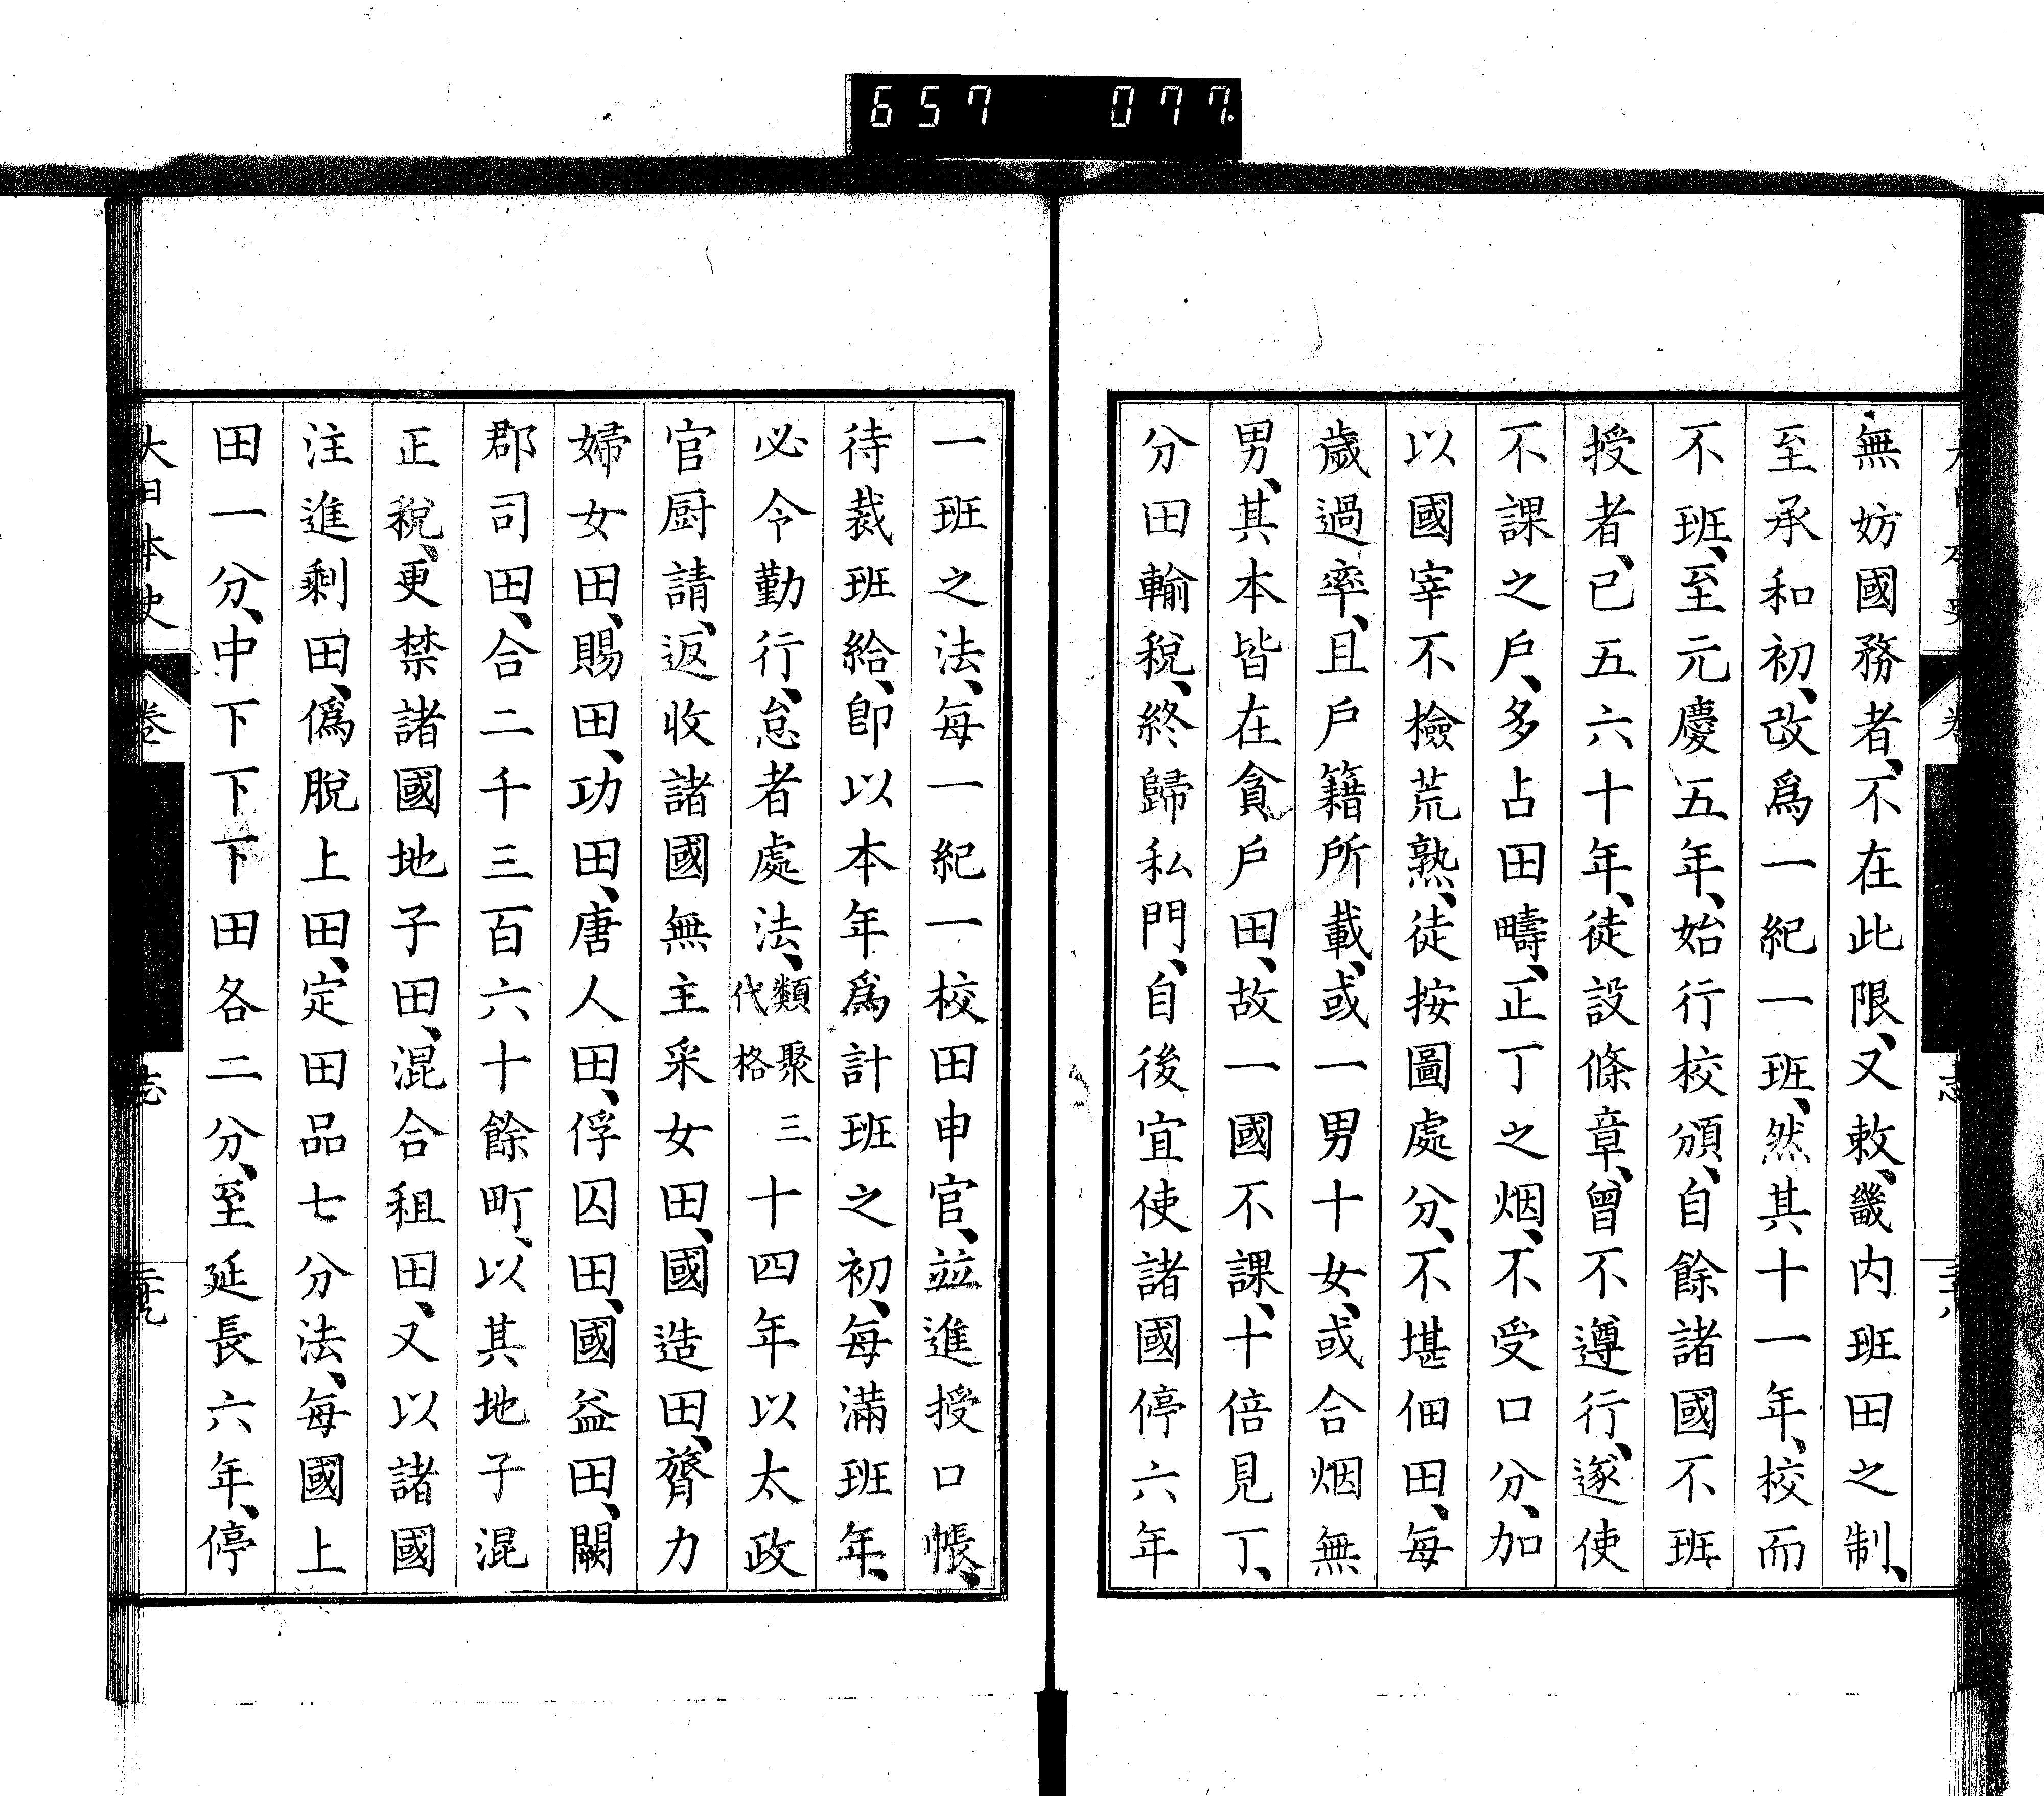 657 077
無妨國務者、不在此限、又敕、畿内班田之制、
至承和初、改爲一紀一班、然其十一年、校而
不班、至元慶五年、始行校頒、自餘諸國不班
授者、已五六十年、徒設條章、曾不遵行、遂使
不課之戶、多占田疇、正丁之烟、不受口分、加
以國宰不檢荒熟、徒按圖處分、不堪佃田、每
歲過率、且戶籍所載、或一男十女、或合烟無
男、其本皆在貪戶田、故一國不課、十倍見丁、
分田輸稅、終歸私門、自後宜使諸國停六年
一班之法、每一紀一校田申官、竝進授口帳、
待裁班給、卽以本年爲計班之初、每滿班年、
必令勤行、怠者處法、類聚三代格十四年以太政
官厨請、返收諸國無主采女田、國造田、膂力
婦女田、賜田、功田、唐人田、俘囚田、國益田、闕
郡司田、合二千三百六十餘町、以其地子混
正稅、更禁諸國地子田、混合租田、又以諸國
注進剩田、僞脫上田、定田品七分法、每國上
田一分、中下下下田各二分、至延長六年、停
大日本史 卷 志